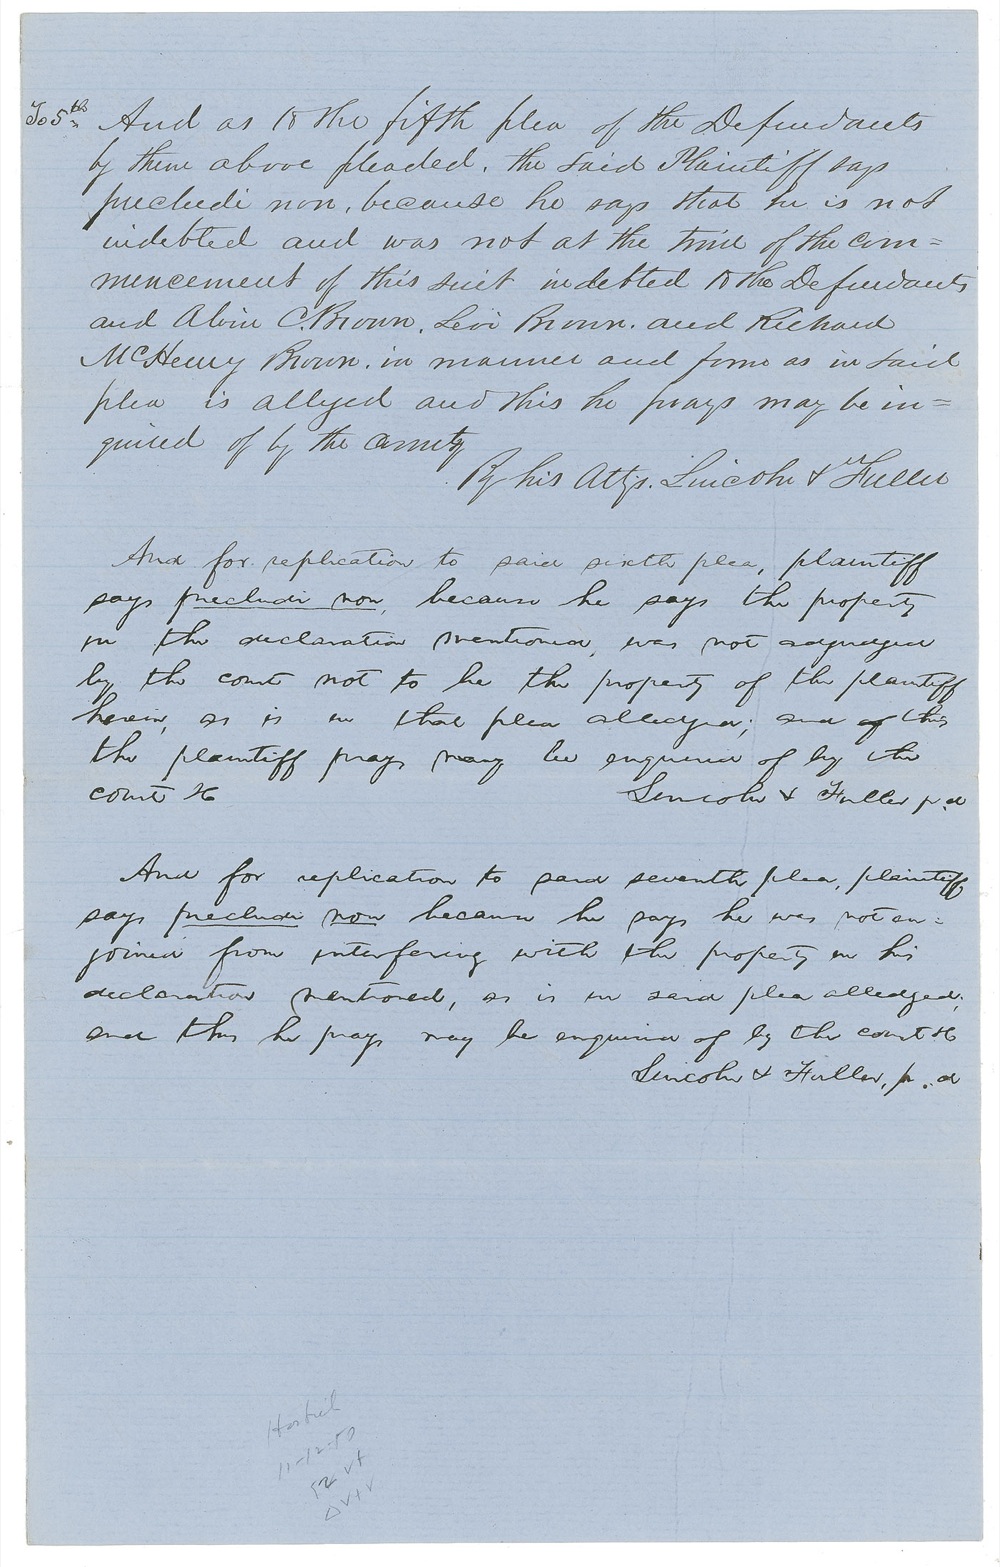 To 5th And as to the fifth plea of the Defendants
by them above pleaded, the said Plaintiff says
precludi non, because he says that he is not
indebted and was not at the time of the com=
mencement of this suit indebted to the Defendants
and Alvin C. Brown, Levi Brown, and Richard
McHenry Brown, in manner and form as in said
plea is alleged and this he prays may be in=
quired of by the county
By his Attys. Lincoln & Fuller
And for replication to said sixth plea, plaintiff
says precludi non, because he says the property
in the declaration mentioned, was not adjudged
by the court not to be the property of the plaintiff
herein, as is in that plea alledged; and of this
the plaintiff prays may be enquired of by the
court &c Lincoln & Fuller p. d
And for replication to said seventh plea, plaintiff
says precludi non because he says he was not en=
joined from interfering with the property in his
declaration mentioned, as is in said plea alledged;
and this he prays may be enquired of by the court &c
Lincoln & Fuller, p. d
11-12-50